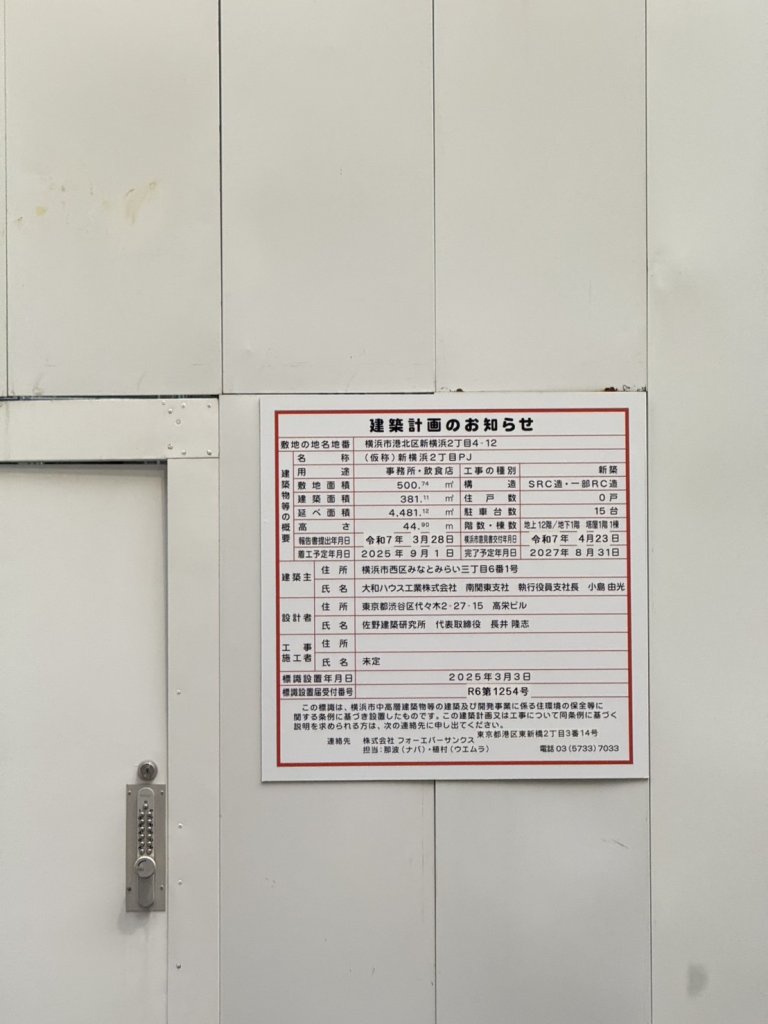 建築計画のお知らせ
敷地の地名地番 横浜市港北区新横浜2丁目4-12
建築物等の概要
名称 (仮称)新横浜2丁目PJ
用途 事務所・飲食店 工事の種別 新築
敷地面積 500.74 ㎡ 構造 SRC造・一部RC造
建築面積 381.11 ㎡ 住戸数 0戸
延べ面積 4,481.12 ㎡ 駐車台数 15台
高さ 44.90 m 階数・棟数 地上12階/地下1階 塔屋1階 1棟
報告書提出年月日 令和7年 3月28日 横浜市意見書交付年月日 令和7年 4月23日
着工予定年月日 2025年9月1日 完了予定年月日 2027年8月31日
建築主 住所 横浜市西区みなとみらい三丁目6番1号
氏名 大和ハウス工業株式会社 南関東支社 執行役員支社長 小島 由光
設計者 住所 東京都渋谷区代々木2-27-15 高栄ビル
氏名 佐野建築研究所 代表取締役 長井 隆志
工事施工者 住所
氏名 未定
標識設置年月日 2025年3月3日
標識設置届受付番号 R6第1254号
この標識は、横浜市中高層建築物等の建築及び開発事業に係る住環境の保全等に
関する条例に基づき設置したものです。この建築計画又は工事について同条例に基づく
説明を求められる方は、次の連絡先に申し出てください。
東京都港区東新橋2丁目3番14号
連絡先 株式会社 フォーエバーサンクス
担当:那波(ナバ)・植村(ウエムラ) 電話 03(5733)7033